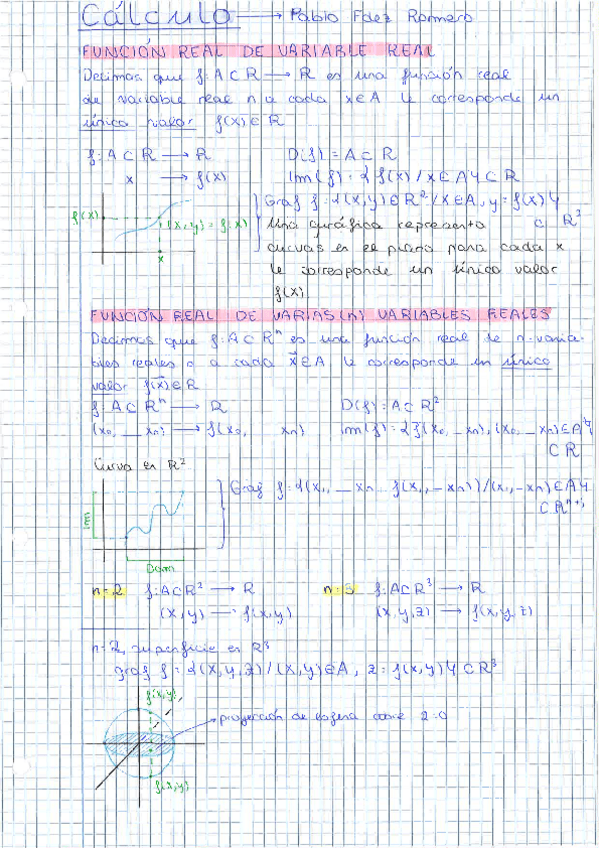 Cálculo → Pablo Fdez Romero
FUNCIÓN REAL DE VARIABLE REAL
Decimos que f: A⊂R → R es una función real
de variable real si a cada x∈A le corresponde un
único valor f(x)∈R
f: A⊂R → R D(f) = A⊂R
x → f(x) Im(f) = {f(x) / x∈A} ⊂ R
Graf f = {(x,y)∈R² / x∈A, y = f(x)}
⊂ R²
f(x) (x,y) = f(x)
x
Una gráfica representa
curvas en el plano para cada x
le corresponde un único valor
f(x)
FUNCIÓN REAL DE VARIAS (n) VARIABLES REALES
Decimos que f: A⊂Rⁿ es una función real de n-varia-
bles reales si a cada x∈A le corresponde un único
valor f(x)∈R
f: A⊂Rⁿ → R D(f) = A⊂R²
(x₁, _ xₙ) → f(x₁, xₙ) Im(f) = {f(x₁, _ xₙ), (x₁, _ xₙ)∈A}
⊂ R
Curva en R²
Graf f = {(x₁, _ xₙ f(x₁, _ xₙ)) / (x₁, _ xₙ)∈A}
⊂ Rⁿ⁺¹
Im
Dom
n=2 f: A⊂R² → R n=3 f: A⊂R³ → R
(x,y) → f(x,y) (x,y,z) → f(x,y,z)
n=2, superficie en R³
graf f = {(x,y,z) / (x,y)∈A, z = f(x,y)} ⊂ R³
f(x,y)
proyección de esfera sobre z=0
f(x,y)